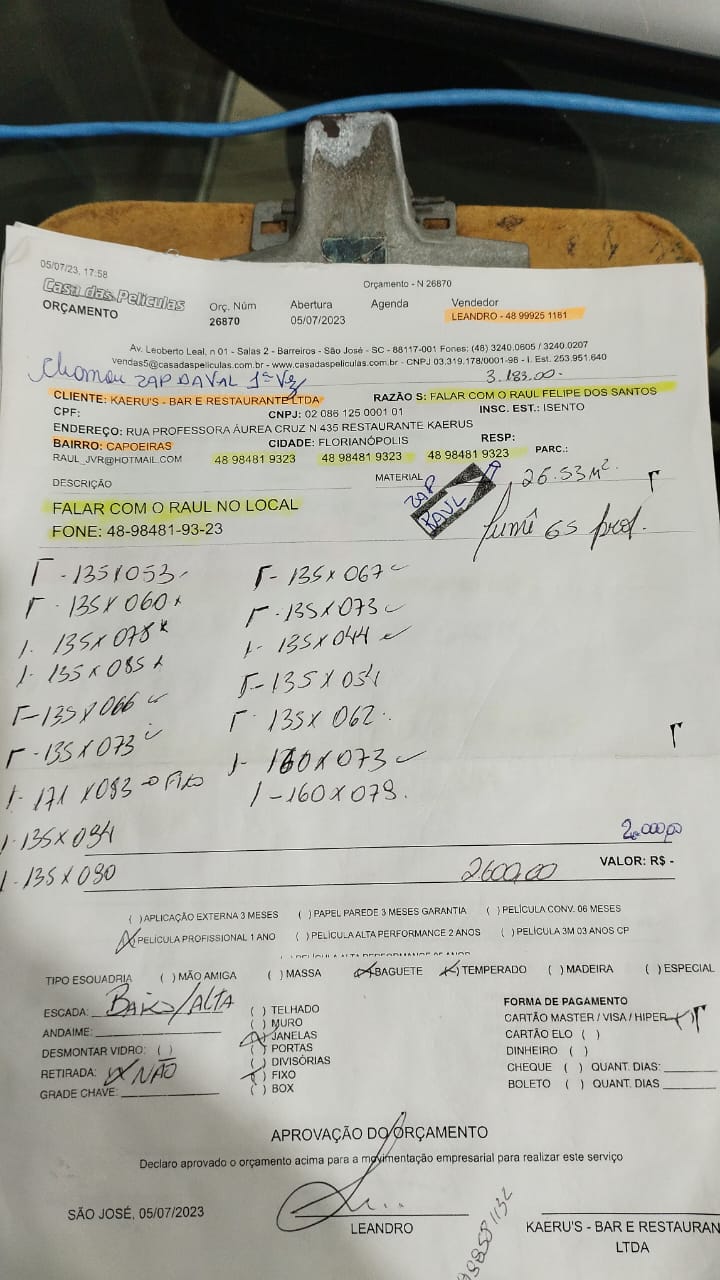 05/07/23, 17:58
Orçamento - N 26870
Casa das Películas
ORÇAMENTO
Orç. Núm Abertura Agenda Vendedor
26870 05/07/2023 LEANDRO - 48 99925 1161
Av. Leoberto Leal, n 01 - Salas 2 - Barreiros - São José - SC - 88117-001 Fones: (48) 3240.0605 / 3240.0207
vendas5@casadaspeliculas.com.br - www.casadaspeliculas.com.br - CNPJ 03.319.178/0001-96 - I. Est. 253.951.640
chamou ZAP DAVAL 1ª Vez 3.183.00-
CLIENTE: KAERU'S - BAR E RESTAURANTE LTDA RAZÃO S: FALAR COM O RAUL FELIPE DOS SANTOS
CPF: CNPJ: 02 086 125 0001 01 INSC. EST.: ISENTO
ENDEREÇO: RUA PROFESSORA ÁUREA CRUZ N 435 RESTAURANTE KAERUS
BAIRRO: CAPOEIRAS CIDADE: FLORIANÓPOLIS RESP:
RAUL_JVR@HOTMAIL.COM 48 98481 9323 48 98481 9323 48 98481 9323 PARC.:
DESCRIÇÃO MATERIAL 26.53 M².
ZAP RAUL
FALAR COM O RAUL NO LOCAL
FONE: 48-98481-93-23
fumê G5 prof.
1-135X053 1-135X067
1-135X060 1-135X073
1-135X078 1-135X044
1-135X085 1-135X054
1-135X066 1-135X062
1-135X073 1-160X073
1-171X083 → FIXO 1-160X079.
1-135X094
2.000,00
1-135X090
2600,00 VALOR: R$ -
( ) APLICAÇÃO EXTERNA 3 MESES ( ) PAPEL PAREDE 3 MESES GARANTIA ( ) PELÍCULA CONV. 06 MESES
(X) PELÍCULA PROFISSIONAL 1 ANO ( ) PELÍCULA ALTA PERFORMANCE 2 ANOS ( ) PELÍCULA 3M 03 ANOS CP
TIPO ESQUADRIA ( ) MÃO AMIGA ( ) MASSA (X) BAGUETE (X) TEMPERADO ( ) MADEIRA ( ) ESPECIAL
ESCADA: BAIXO/ALTA ( ) TELHADO FORMA DE PAGAMENTO
ANDAIME: ( ) MURO CARTÃO MASTER / VISA / HIPER (X)
(X) JANELAS CARTÃO ELO ( )
DESMONTAR VIDRO: ( ) ( ) PORTAS DINHEIRO ( )
RETIRADA: (X) NÃO ( ) DIVISÓRIAS CHEQUE ( ) QUANT. DIAS:
(X) FIXO BOLETO ( ) QUANT. DIAS
GRADE CHAVE: ( ) BOX
APROVAÇÃO DO ORÇAMENTO
Declaro aprovado o orçamento acima para a movimentação empresarial para realizar este serviço
SÃO JOSÉ, 05/07/2023 LEANDRO KAERU'S - BAR E RESTAURAN
LTDA